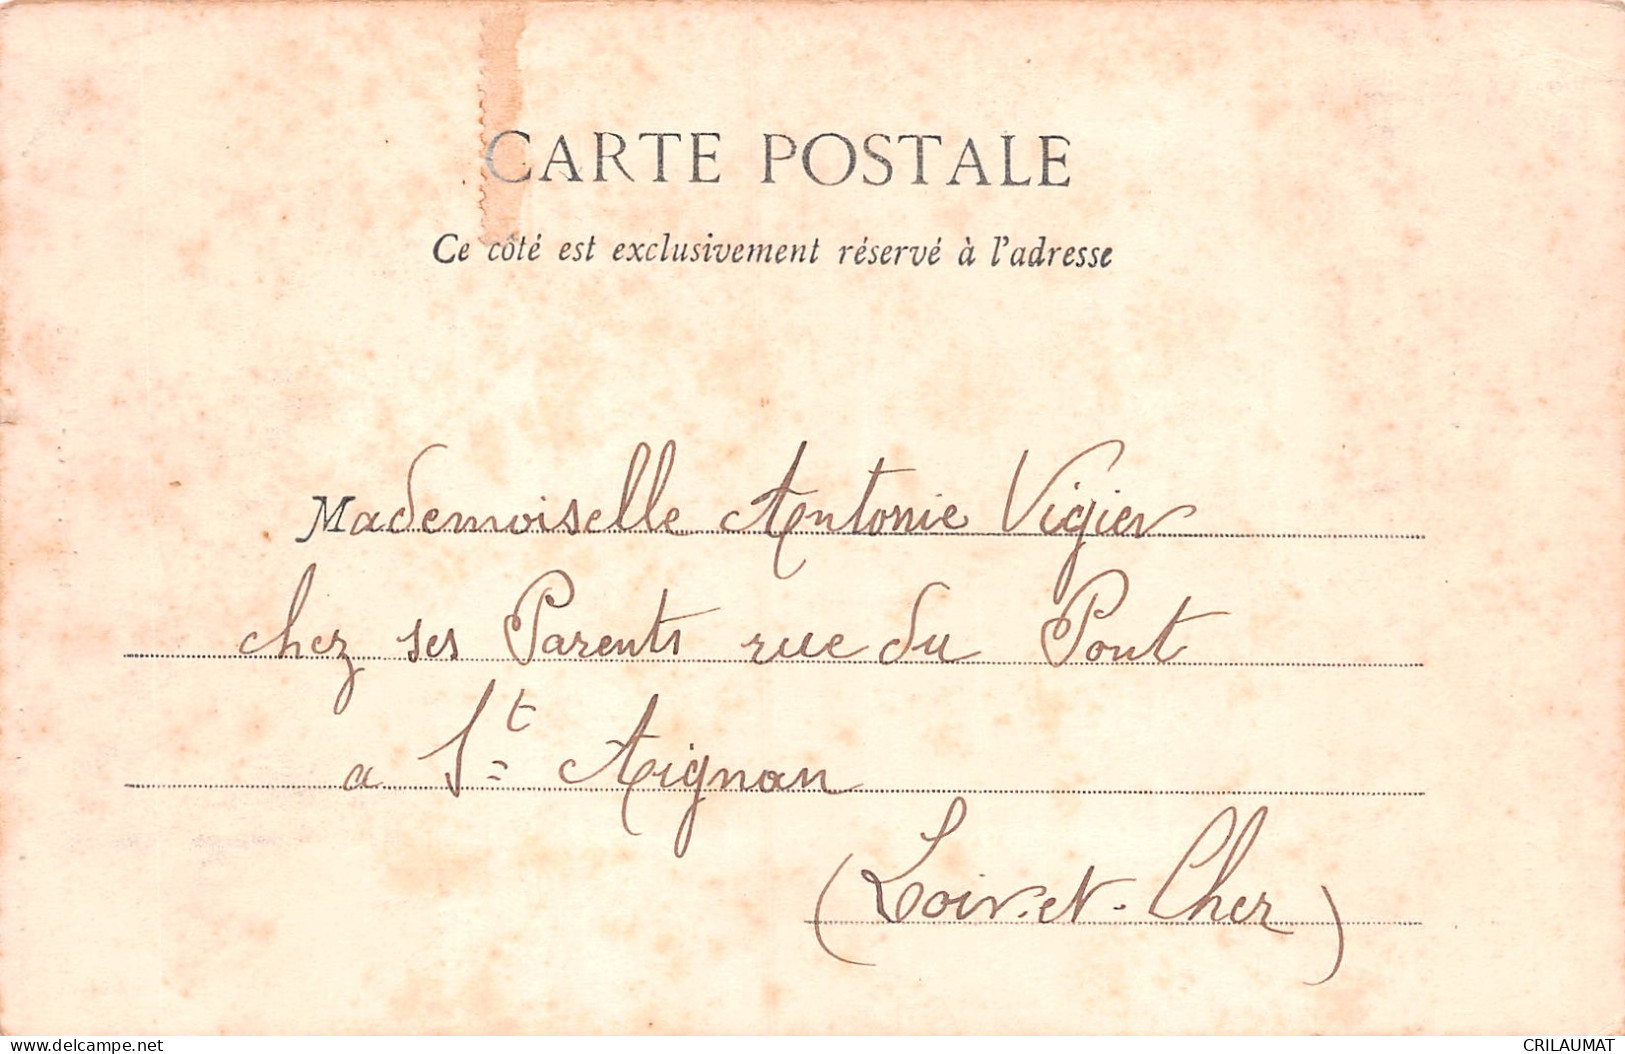 CARTE POSTALE
Ce côté est exclusivement réservé à l'adresse
Mademoiselle Antonie Vigier
chez ses Parents rue du Pont
a St Aignan
(Loir-et-Cher)
delcampe.net
CRILAUMAT